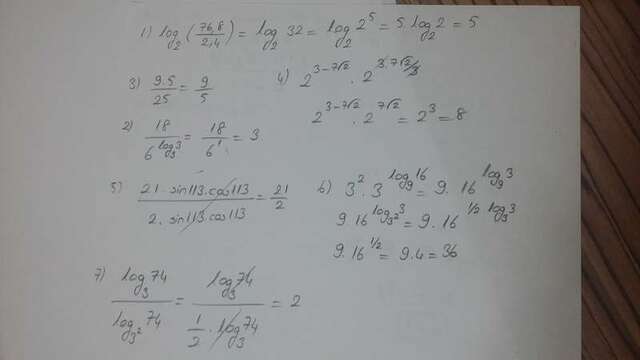 1) log₂(76,8/2,4) = log₂ 32 = log₂ 2⁵ = 5·log₂ 2 = 5
3) 9·5/25 = 9/5
4) 2^(3-7√2) · 2^(
2^(3-7√2) · 2^(7√2) = 2³ = 8
2) 18/6 = 18/6 = 3
5) 21·sin113·cos113/2·sin113·cos113 = 21/2
6) 3² · 3^(log₉ 16) = 9·16^(log₉ 3)
9·16^(log₃² 3) = 9·16^(1/2 log₃ 3)
9·16^(1/2) = 9·4 = 36
7) log₃ 74 / log₃² 74 = log₃ 74 / (1/2 log₃ 74) = 2